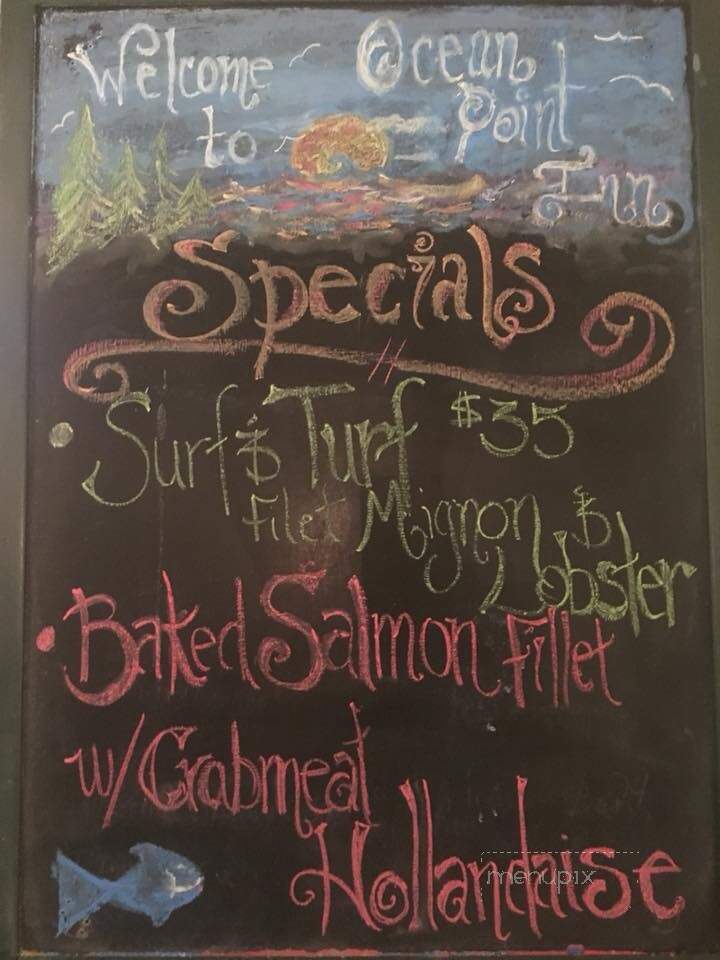 Welcome to Ocean Point Inn
Specials
• Surf & Turf $35
Filet Mignon &
Lobster
• Baked Salmon Fillet
w/ Crabmeat
Hollandaise
menupix